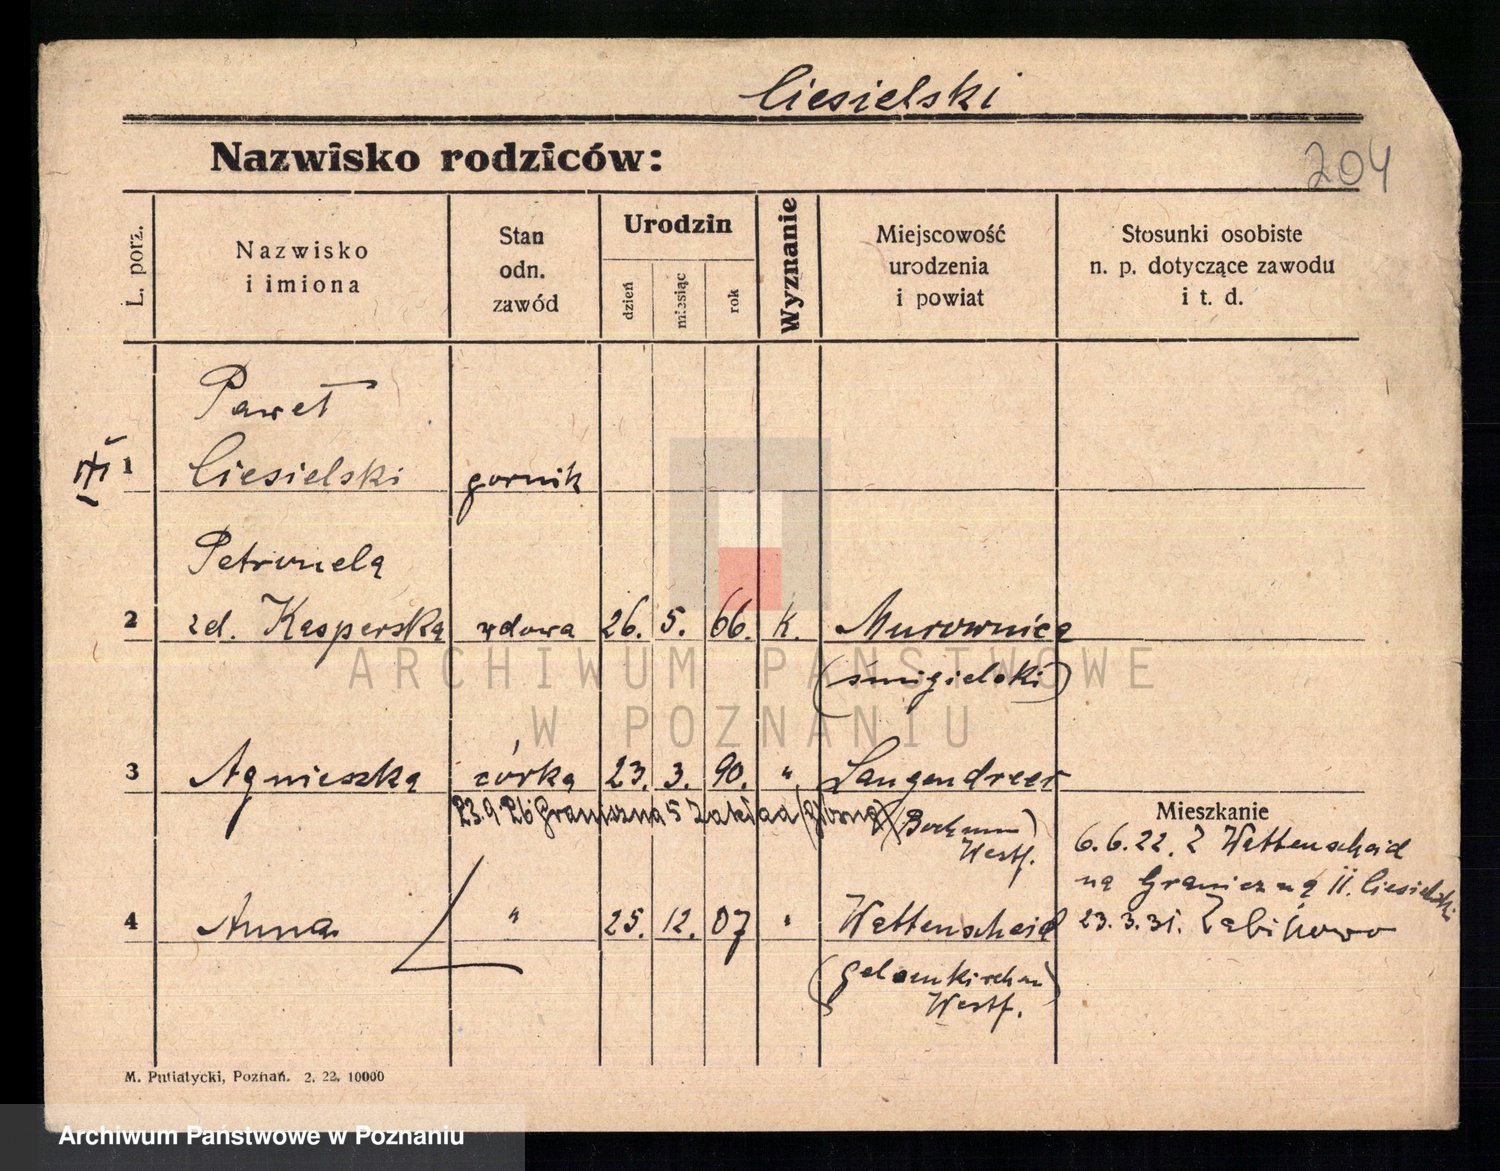 Ciesielski
Nazwisko rodziców:
204
L. porz.
Nazwisko
i imiona
Stan
odn.
zawód
Urodzin
dzień
miesiąc
rok
Wyznanie
Miejscowość
urodzenia
i powiat
Stosunki osobiste
n. p. dotyczące zawodu
i t. d.
Paweł
1 Ciesielski gornik
Petronela
2 zd. Kasperska wdowa 26. 5. 66. K. Murownica
(śmigielski)
3 Agnieszka córka 23. 3. 90. " Langendreer
23.9.26 Graniczna 5 Zakład
(Bochum)
Westf.
Mieszkanie
6.6.22. Z Wattenscheid
na Graniczną 11. Ciesielski
4 Anna " 25. 12. 07 " Wattenscheid
23.3.31. Żabikowo
(Gelsenkirchen
Westf.)
M. Putiatycki, Poznań. 2. 22. 10000
ARCHIWUM PAŃSTWOWE
W POZNANIU
Archiwum Państwowe w Poznaniu